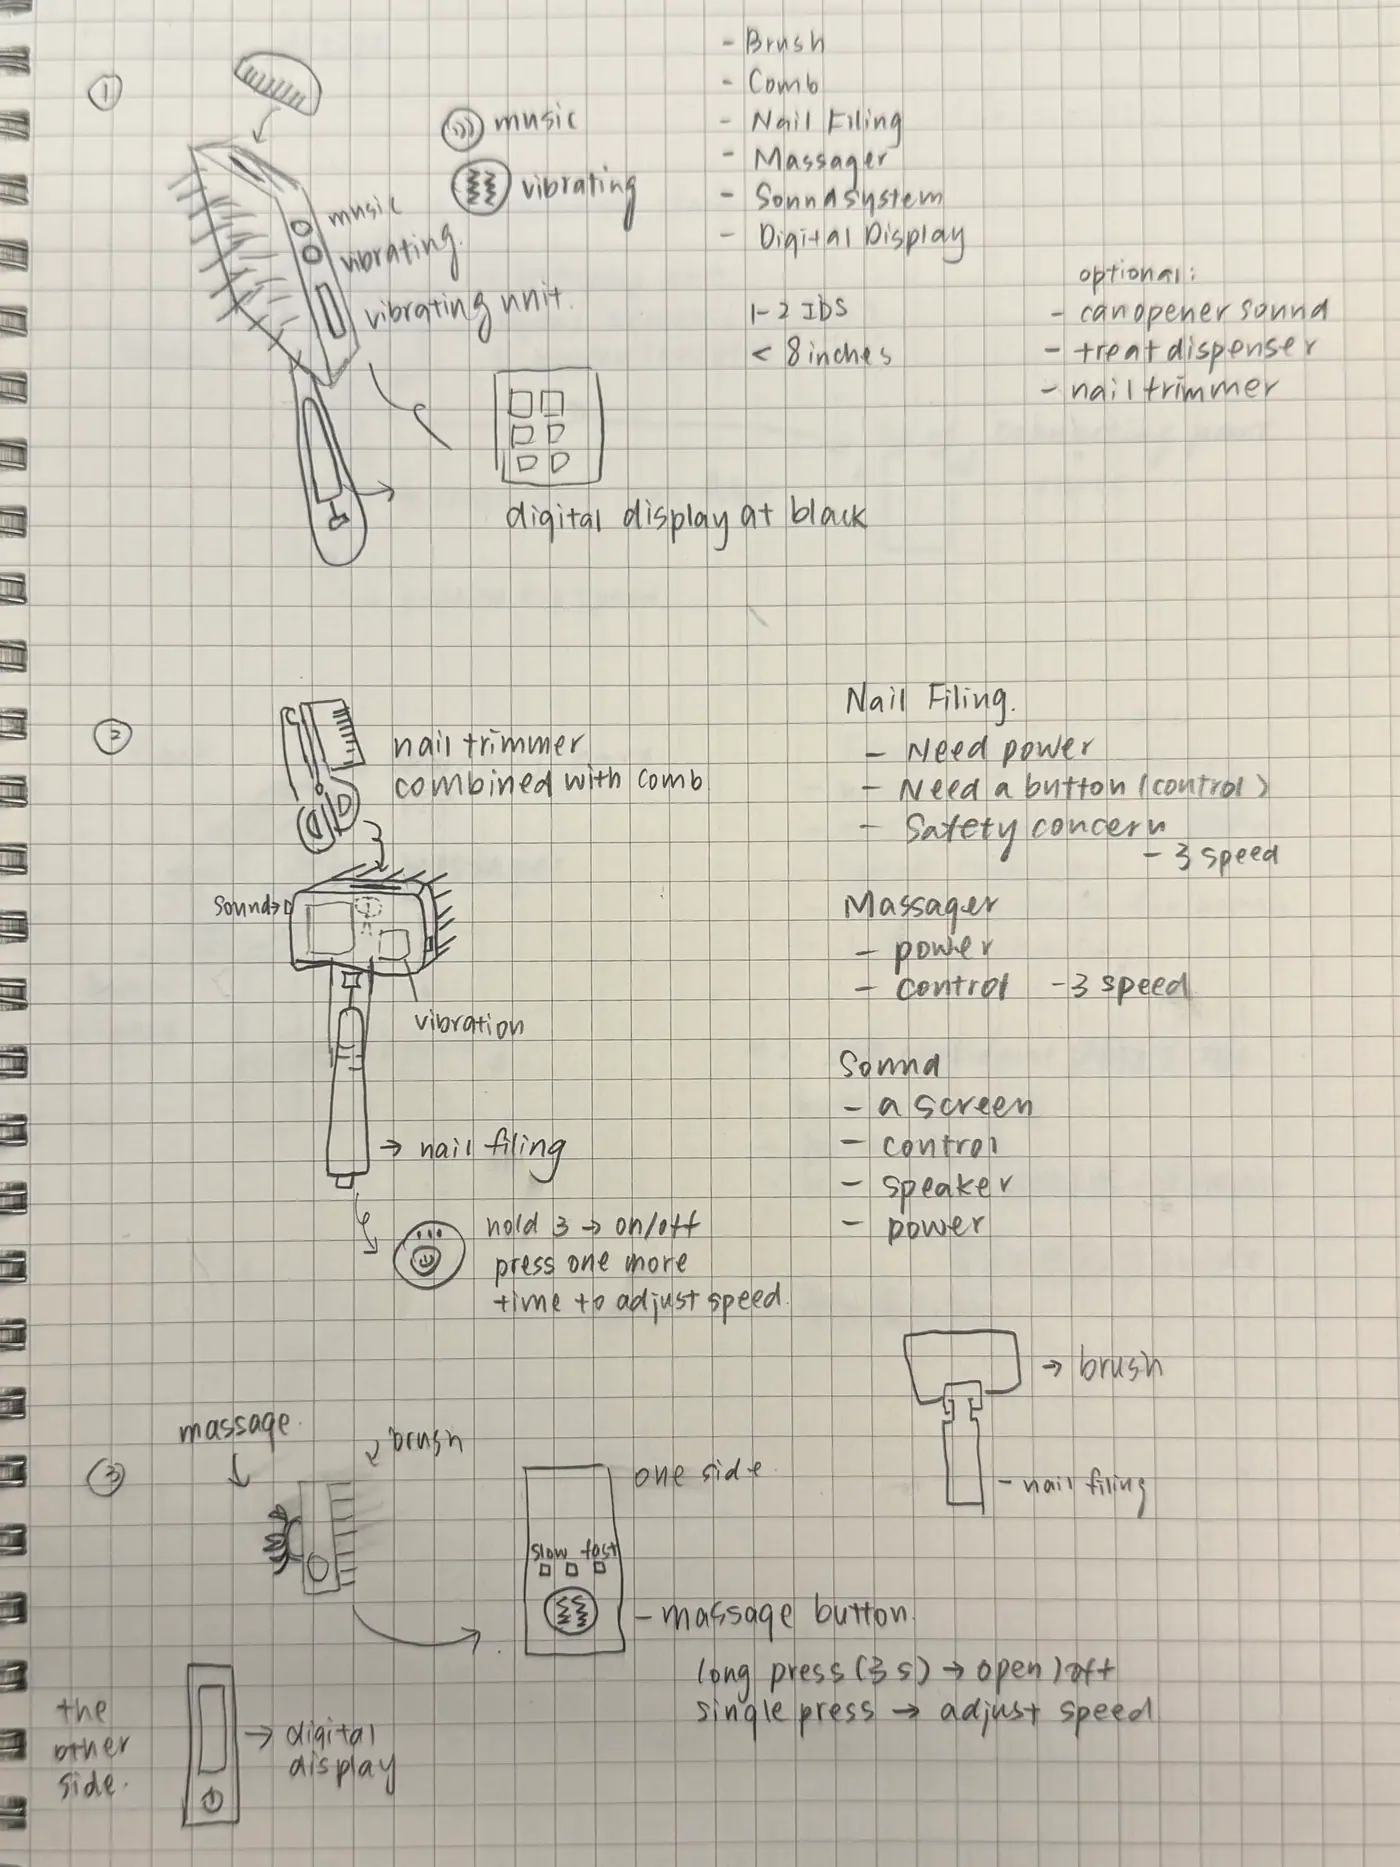 ①
music
vibrating
music
vibrating.
vibrating unit.
- Brush
- Comb
- Nail Filing
- Massager
- Sonndsystem
- Digital Display
1-2 IbS
< 8 inches
optional:
- can opener sound
- treat dispenser
- nail trimmer
digital display at black
②
nail trimmer
combined with comb
Sound→
vibration
→ nail filing
hold 3 → on/off
press one more
time to adjust speed.
Nail Filing.
- Need power
- Need a button (control)
- Safety concern
- 3 speed
Massager
- power
- control -3 speed
Sonnd
- a screen
- control
- speaker
- power
→ brush
- nail filing
③
massage.
brush
one side.
slow fast
- massage button.
long press (3 s) → open/off
single press → adjust speed
the
other
side.
→ digital
display